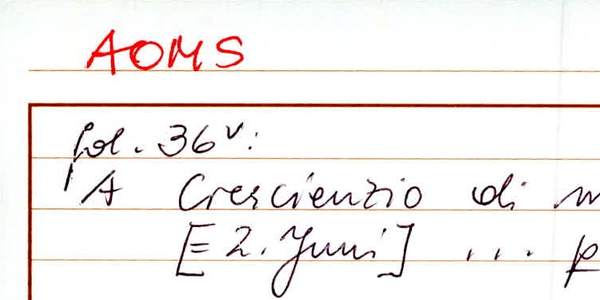 AOMS
fol. 36v:
A Crescienzio di m
[= 2. Juni] ... p